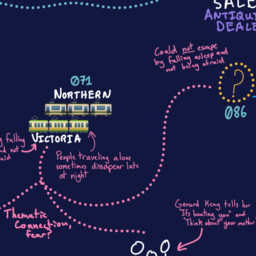 SALE
ANTIQU
DEALE
Could not escape
by falling asleep and
not being afraid
?
086
071
NORTHERN
y falling
d not
aid
VICTORIA
People traveling alone
sometimes disappear late
at night
Thematic
connection,
fear?
Gerard Keay tells her
"It's hunting you" and
"Think about your mother"